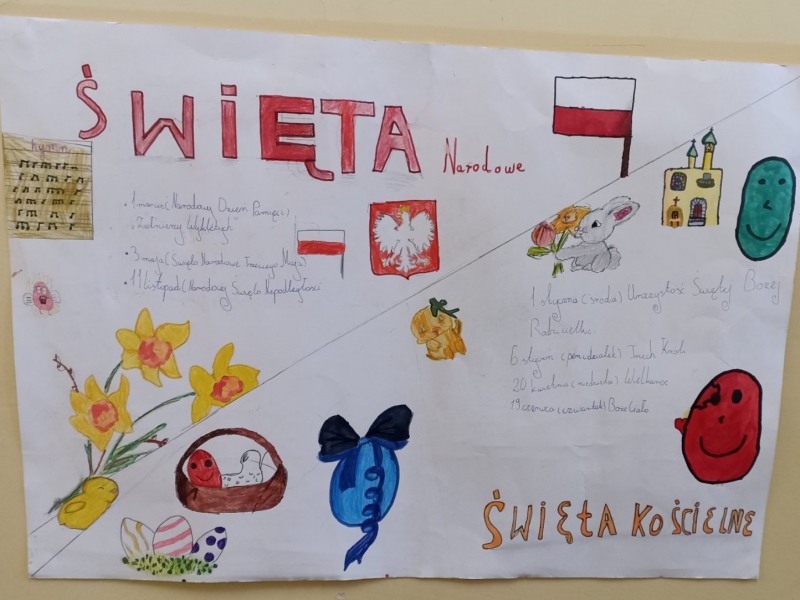 ŚWIĘTA
Narodowe
hymn
• 1 marca (Narodowy Dzień Pamięci)
"Żołnierzy Wyklętych"
• 3 maja (Święto Narodowe Trzeciego Maja)
• 11 listopad (Narodowy Święto Niepodległości
1 stycznia (środa) Urozystość Świętej Bożej
6 stycznia (poniedziałek) Trzech Króli
20 kwietnia (niedziela) Wielkanoc
19 czerwca (czwartek) Boże Ciało
ŚWIĘTA KOŚCIELNE